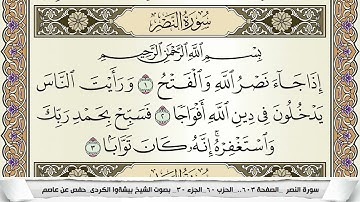 سُورَةُ النَّصْرِ
بِسْمِ اللَّهِ الرَّحْمَٰنِ الرَّحِيمِ
إِذَا جَاءَ نَصْرُ اللَّهِ وَالْفَتْحُ ١ وَرَأَيْتَ النَّاسَ
يَدْخُلُونَ فِي دِينِ اللَّهِ أَفْوَاجًا ٢ فَسَبِّحْ بِحَمْدِ رَبِّكَ
وَاسْتَغْفِرْهُ ۚ إِنَّهُ كَانَ تَوَّابًا ٣
سورة النصر _الصفحة ٦٠٣_ الحزب ٦٠ _الجزء ٣٠_ بصوت الشيخ بيشةوا الكردي_حفص عن عاصم